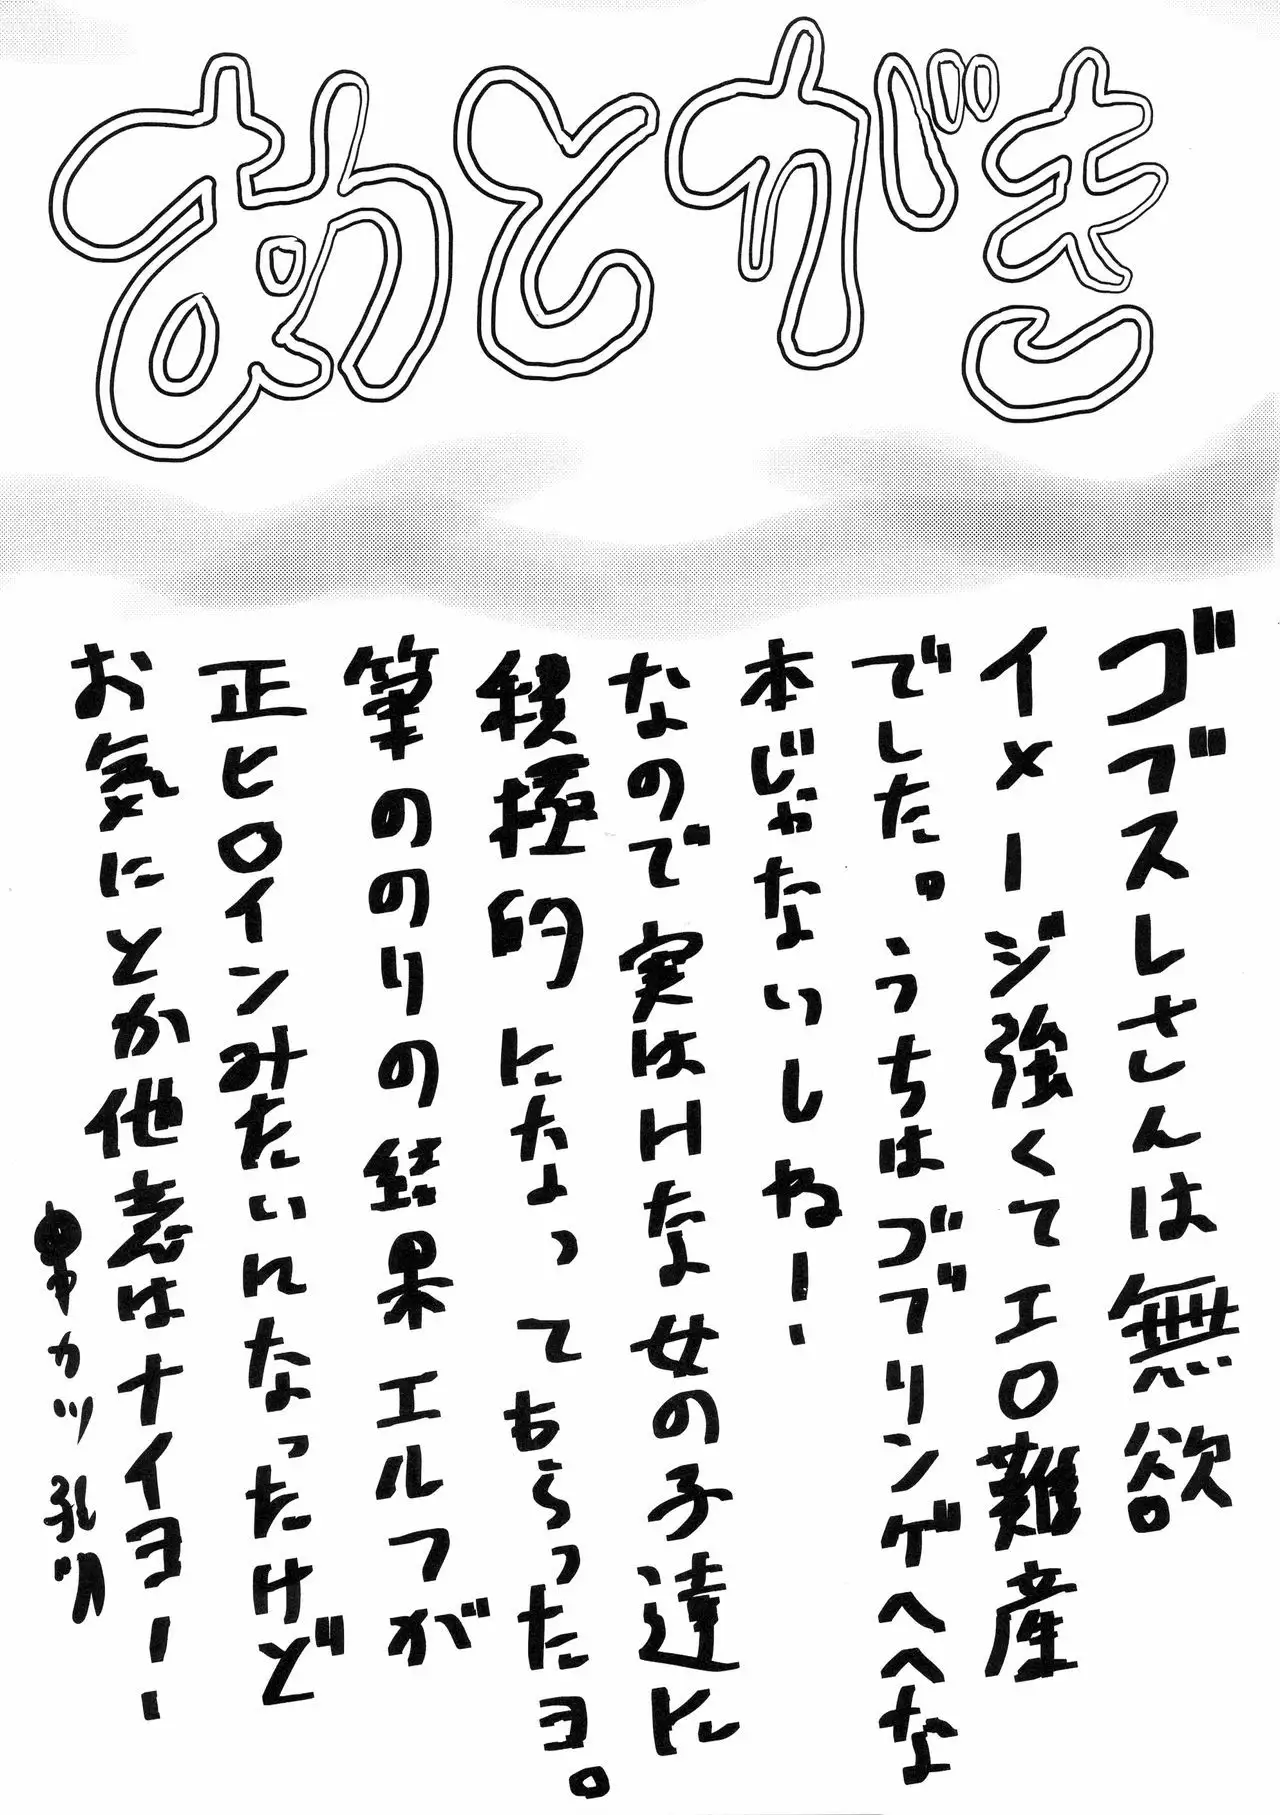 あとがき
ゴブスレさんは無欲
イメージ強くてエロ難産
でした。うちはゴブリンゲヘヘな
本じゃないしね!
なので実はHな女の子達に
積極的になってもらったヨ。
筆ののりの結果エルフが
正ヒロインみたいになったけど
お気にとか他意はナイヨー!
串カツ